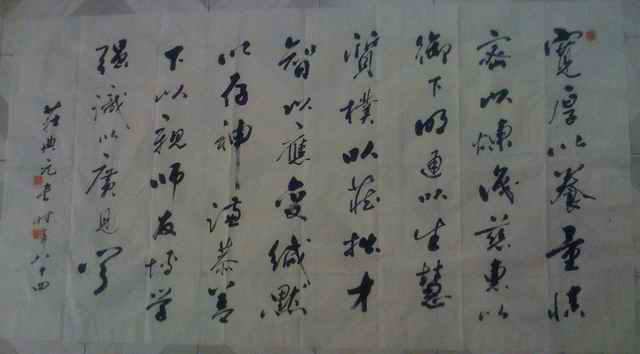 寬厚以養量慎
密以煉識慈惠以
御下明通以生慧
質樸以藏拙才
智以應變緘默
以存神謙恭善
下以親師友博学
强識以廣見闻
莊典元书时年八十四